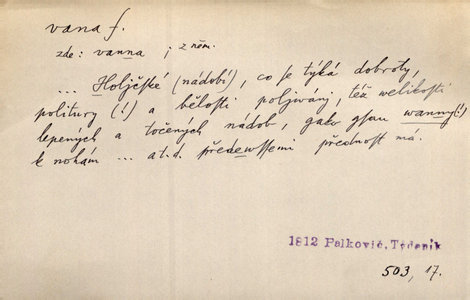 vana f.
zde: vanna ; z něm.
... Holjčské (nádobí), co se týká dobroty,
politury (!) a bělosti poljwánj, též welikosti
lepených a točených nádob, gako gsau wanny (!)
k nohám ... at.d. předewssemi přednost má.
1812 Palkovič, Týdeník
503, 17.